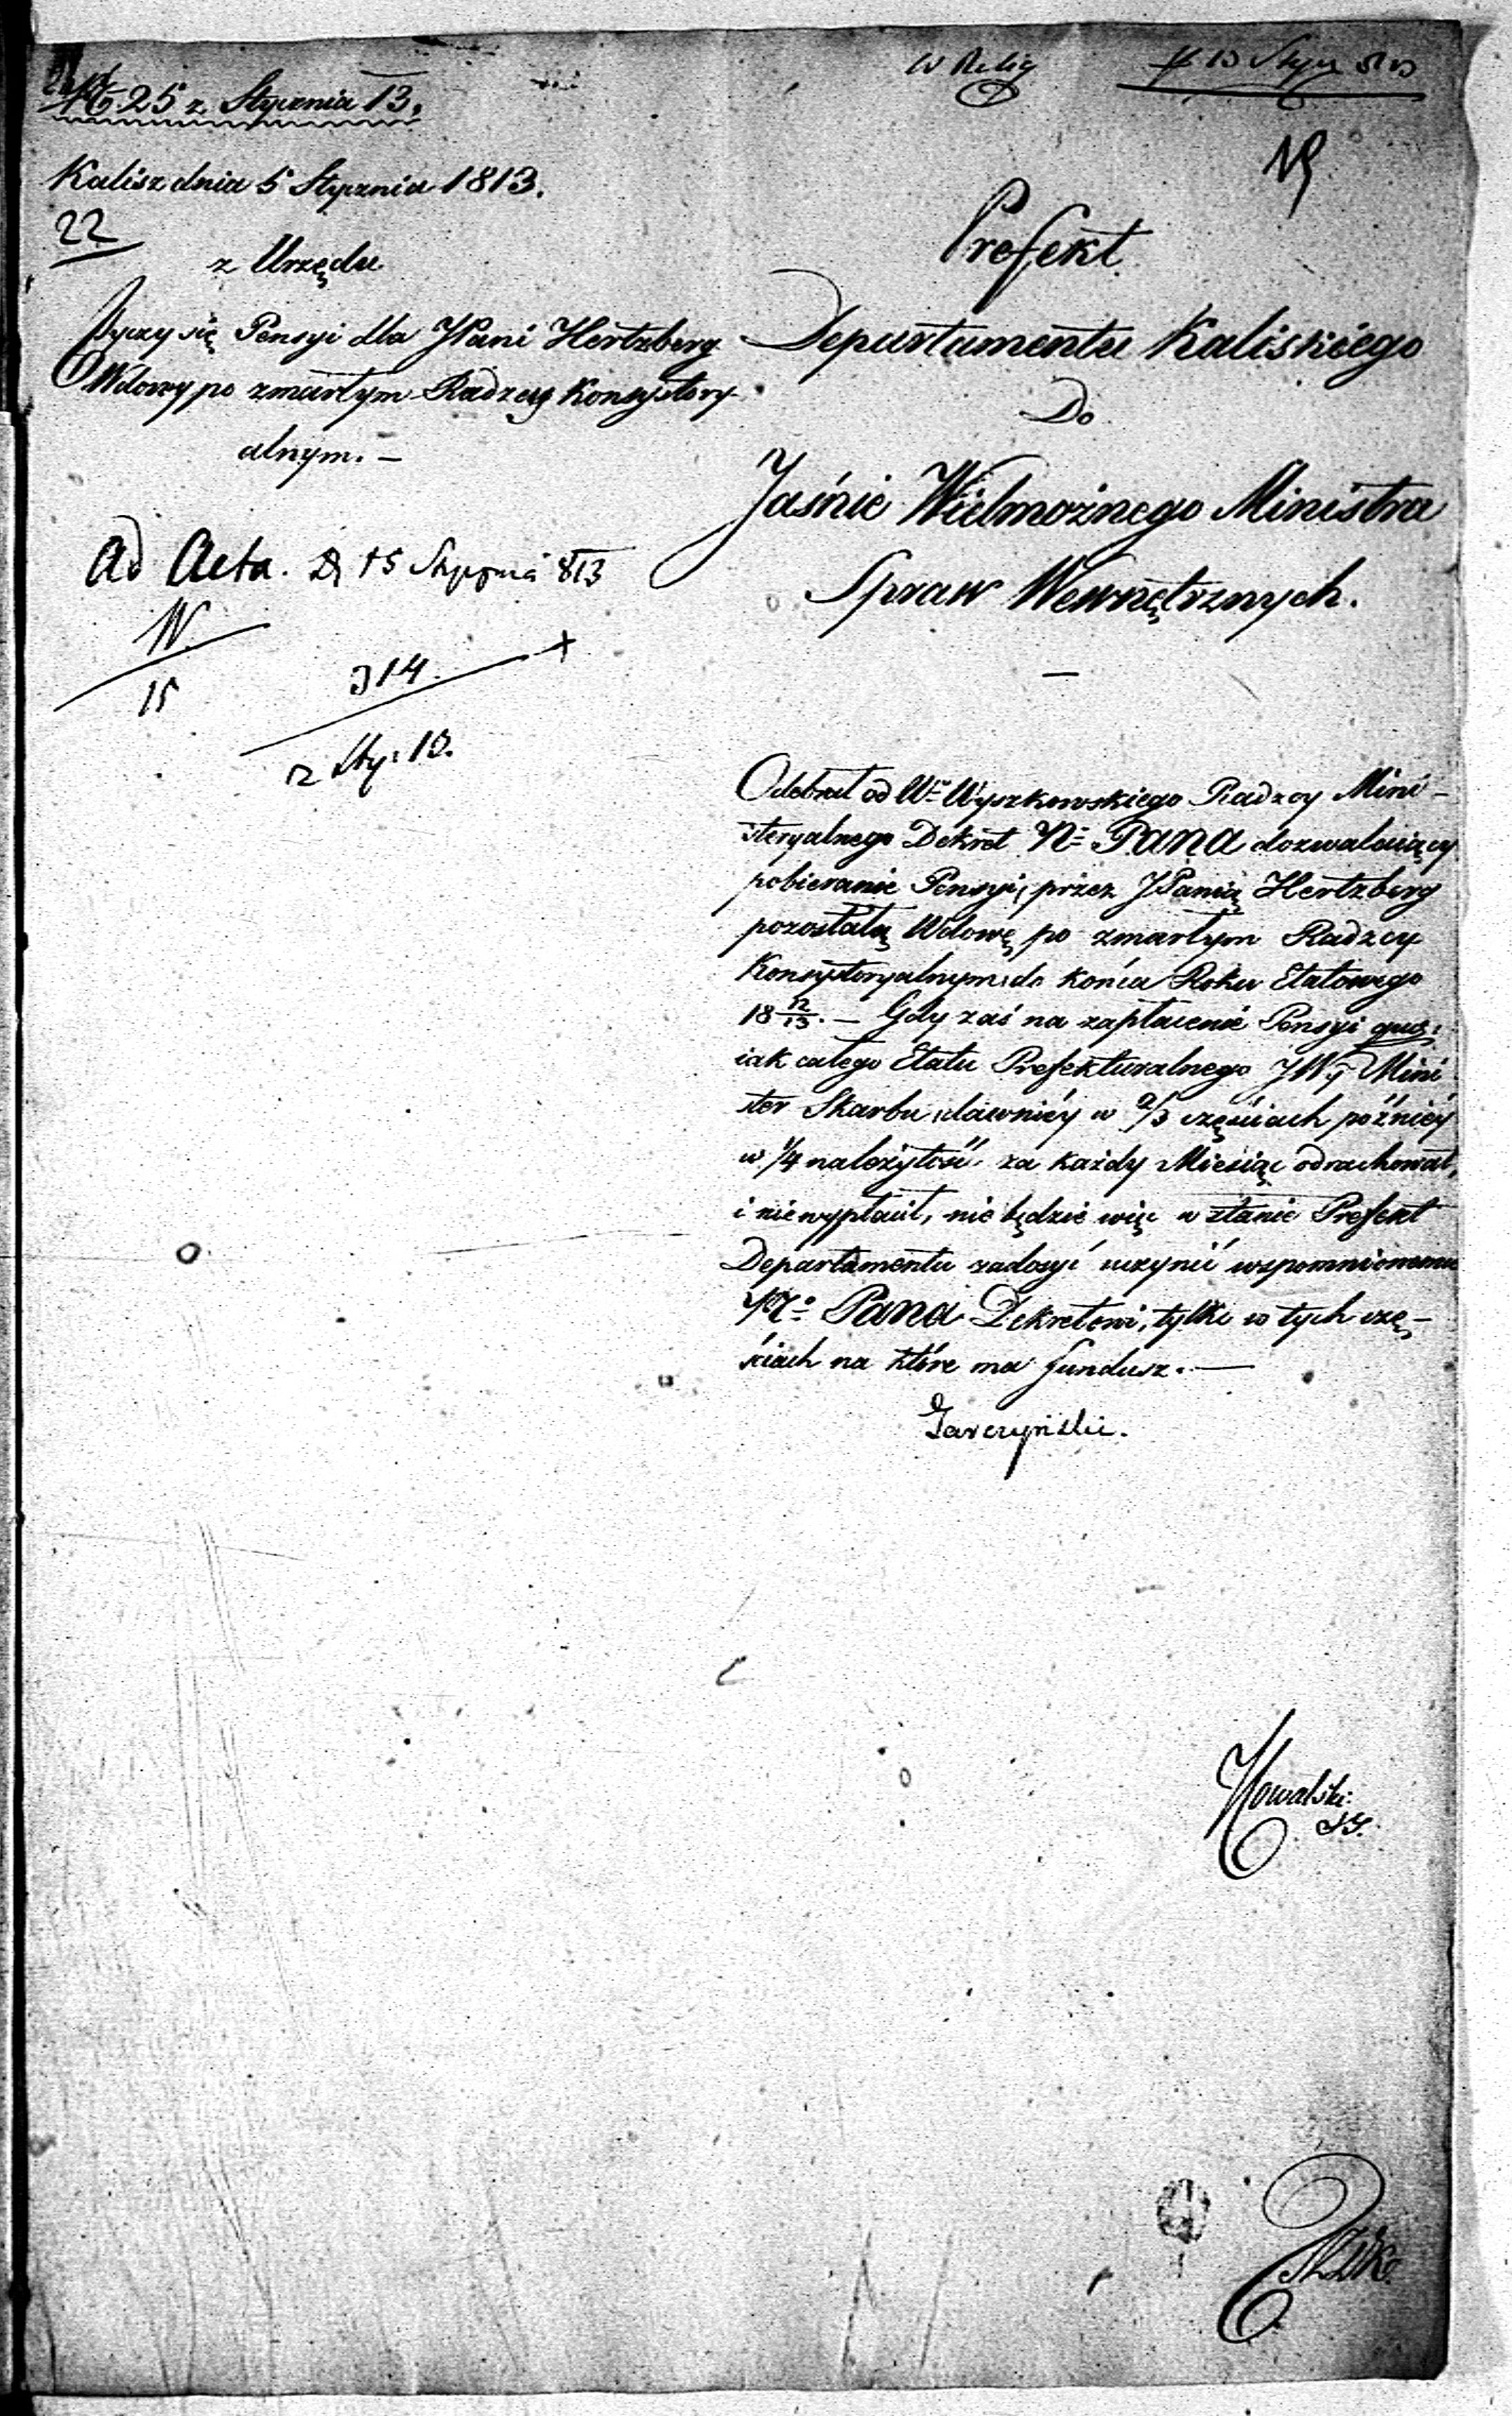 25 z Stycznia 13.
W Relig
13 Stycz 813
Kalisz dnia 5 Stycznia 1813.
22
z Urzędu
Tyczy się Pensyi dla JPani Hertzberg
Wdowy po zmarłym Radzcy Konsystory-
alnym. —
Ad Acta. D 15 Stycznia 813
N.
15
314.
z Sty: 13.
Prefekt
Departamentu Kaliskiego
Do
Jaśnie Wielmożnego Ministra
Spraw Wewnętrznych.
Odebrał od Wgo Wyszkowskiego Radzcy Mini-
steryalnego Dekret Nº Pana dozwalaiący
pobieranie Pensyi, przez JPanią Hertzberg
pozostałą Wdowę po zmarłym Radzcy
Konsystoryalnym, do końca Roku Etatowego
18 12/13. — Gdy zaś na zapłacenie Pensyi
iak całego Etatu Prefekturalnego JW. Mini
ster Skarbu, dawniéy w 2/3 częściach późniéy
w 1/4 należytość za każdy Miesiąc odrachował,
i niewypłacił, nie będzie więc w stanie Prefekt
Departamentu zadosyć uczynić wspomnionemu
Pana Dekretowi, tylko w tych czę-
ściach na które ma Fundusz. —
Garczyński.
Kowalski
SJ.